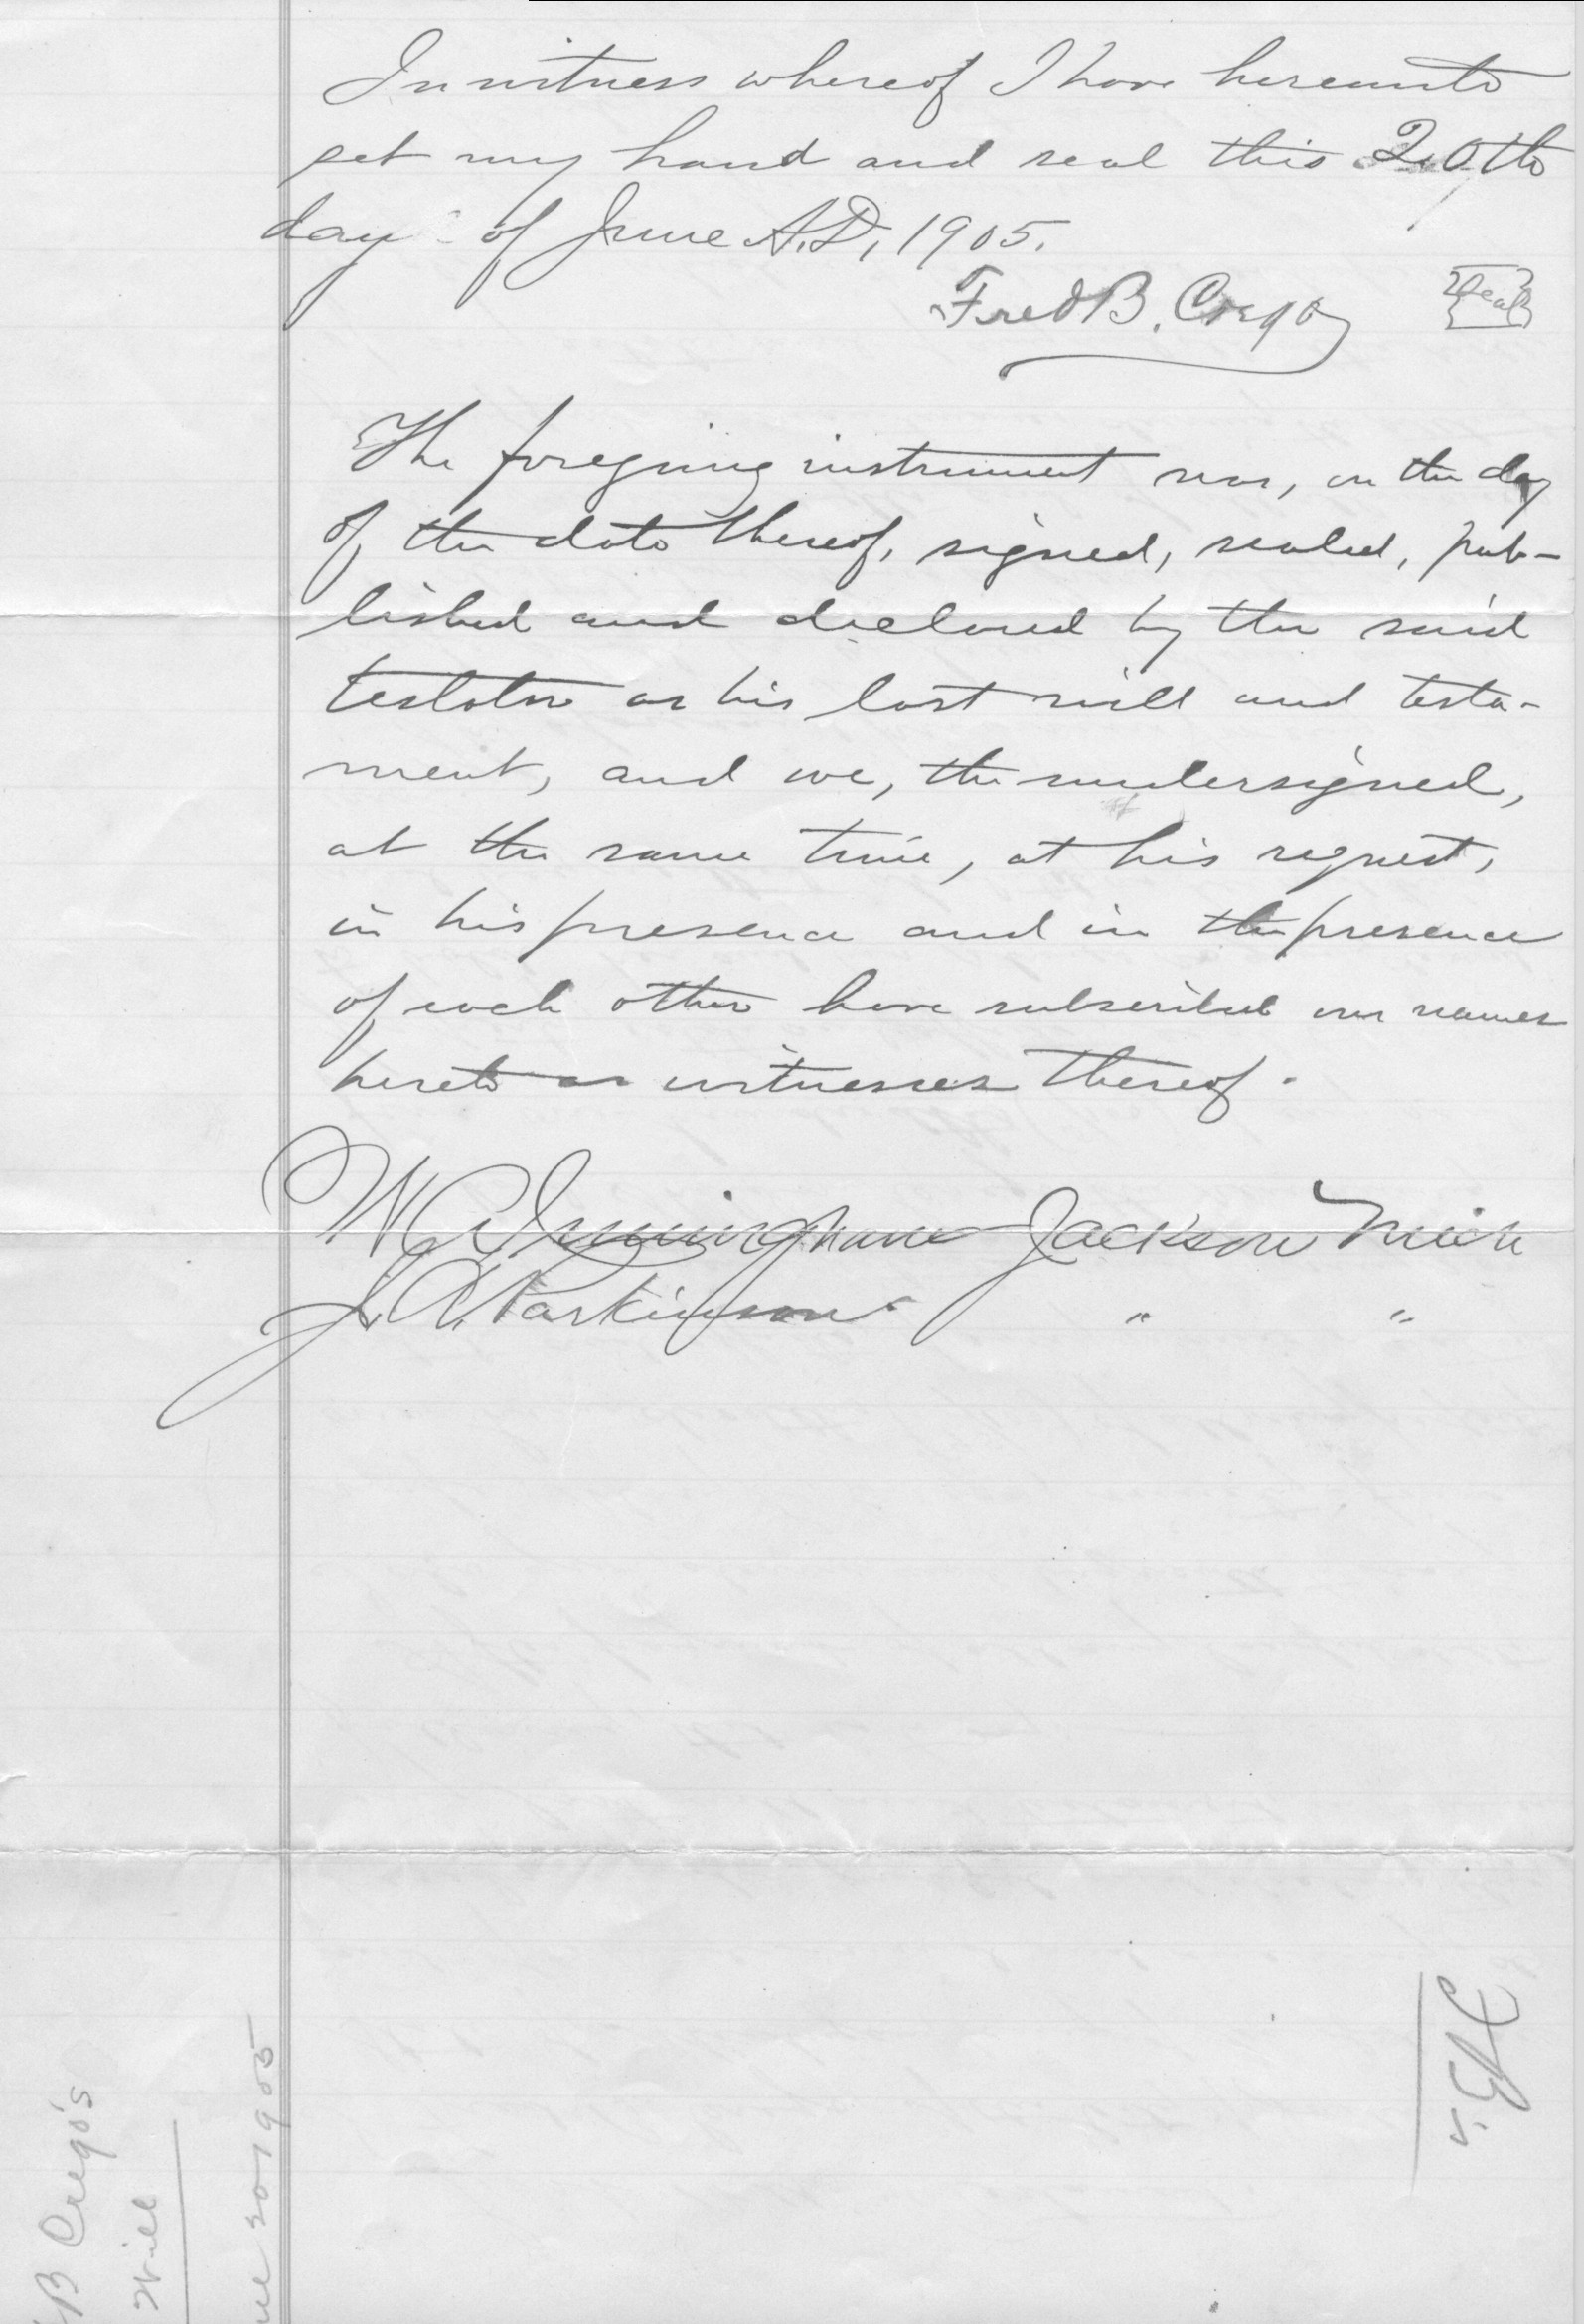 In witness whereof I have hereunto
set my hand and seal this 20th
day of June A.D. 1905.
Fred B. Crego Seal
The foregoing instrument was, on the day
of the date thereof, signed, sealed, pub-
lished and declared by the said
testator as his last will and testa-
ment, and we, the undersigned,
at the same time, at his request,
in his presence and in the presence
of each other have subscribed our names
hereto as witnesses thereof.
W Jackson Mich
J. A. Parkinson " "
B Crego's
Will
ne 20 1905